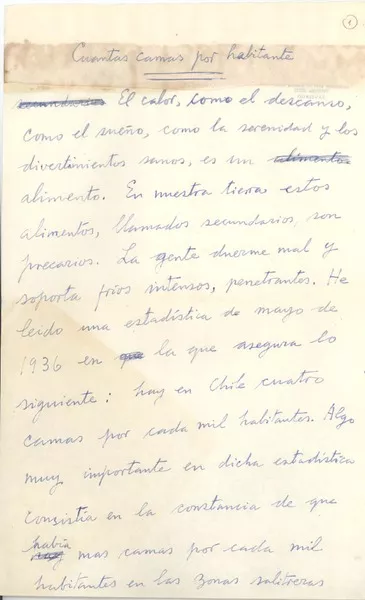 1
Cuantas camas por habitante
secundarios El calor, como el descanso,
como el sueño, como la serenidad y los
divertimientos sanos, es un alimentos
alimento. En nuestra tierra estos
alimentos, llamados secundarios, son
precarios. La gente duerme mal y
soporta fríos intensos, penetrantes. He
leido una estadística de mayo de
1936 en que la que asegura lo
siguiente: hay en Chile cuatro
camas por cada mil habitantes. Algo
muy importante en dicha estadística
consistía en la constancia de que
había
mas camas por cada mil
habitantes en las zonas salitreras